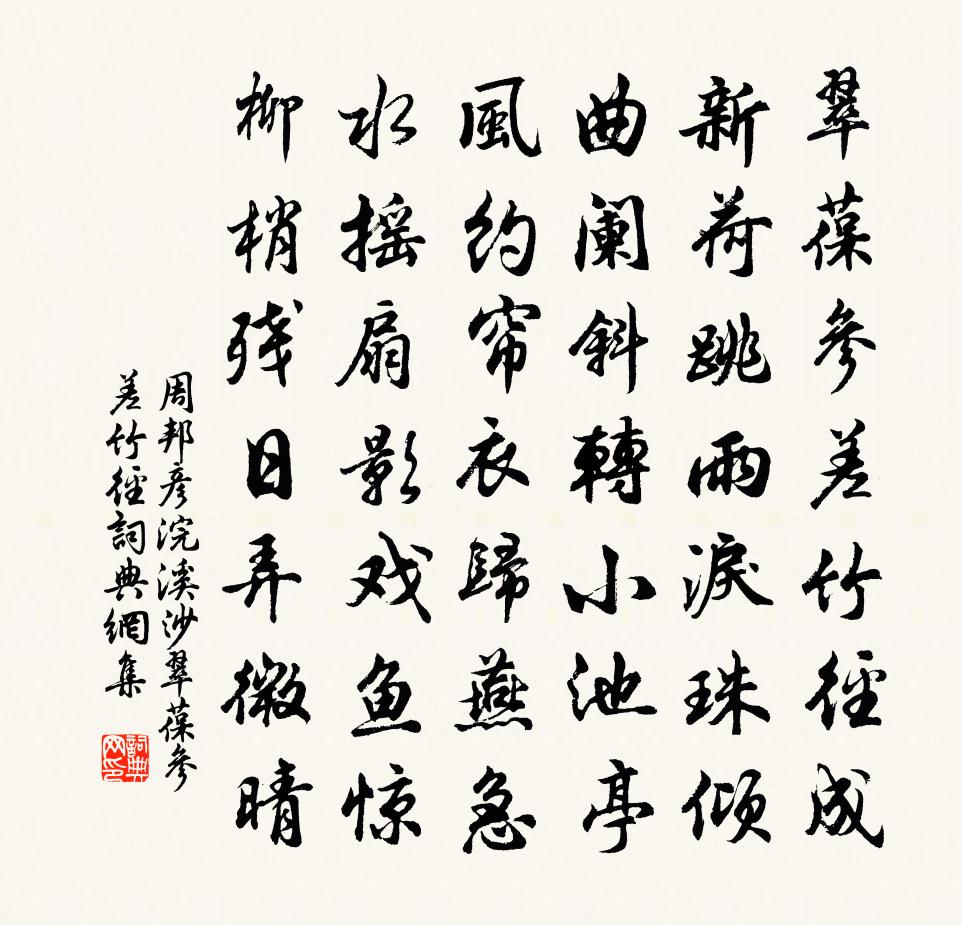 翠葆參差竹徑成
新荷跳雨淚珠傾
曲阑斜轉小池亭
風約帘衣歸燕急
水摇扇影戏鱼惊
柳梢残日弄微晴
周邦彦浣溪沙翠葆參
差竹徑詞典網集
詞典网印